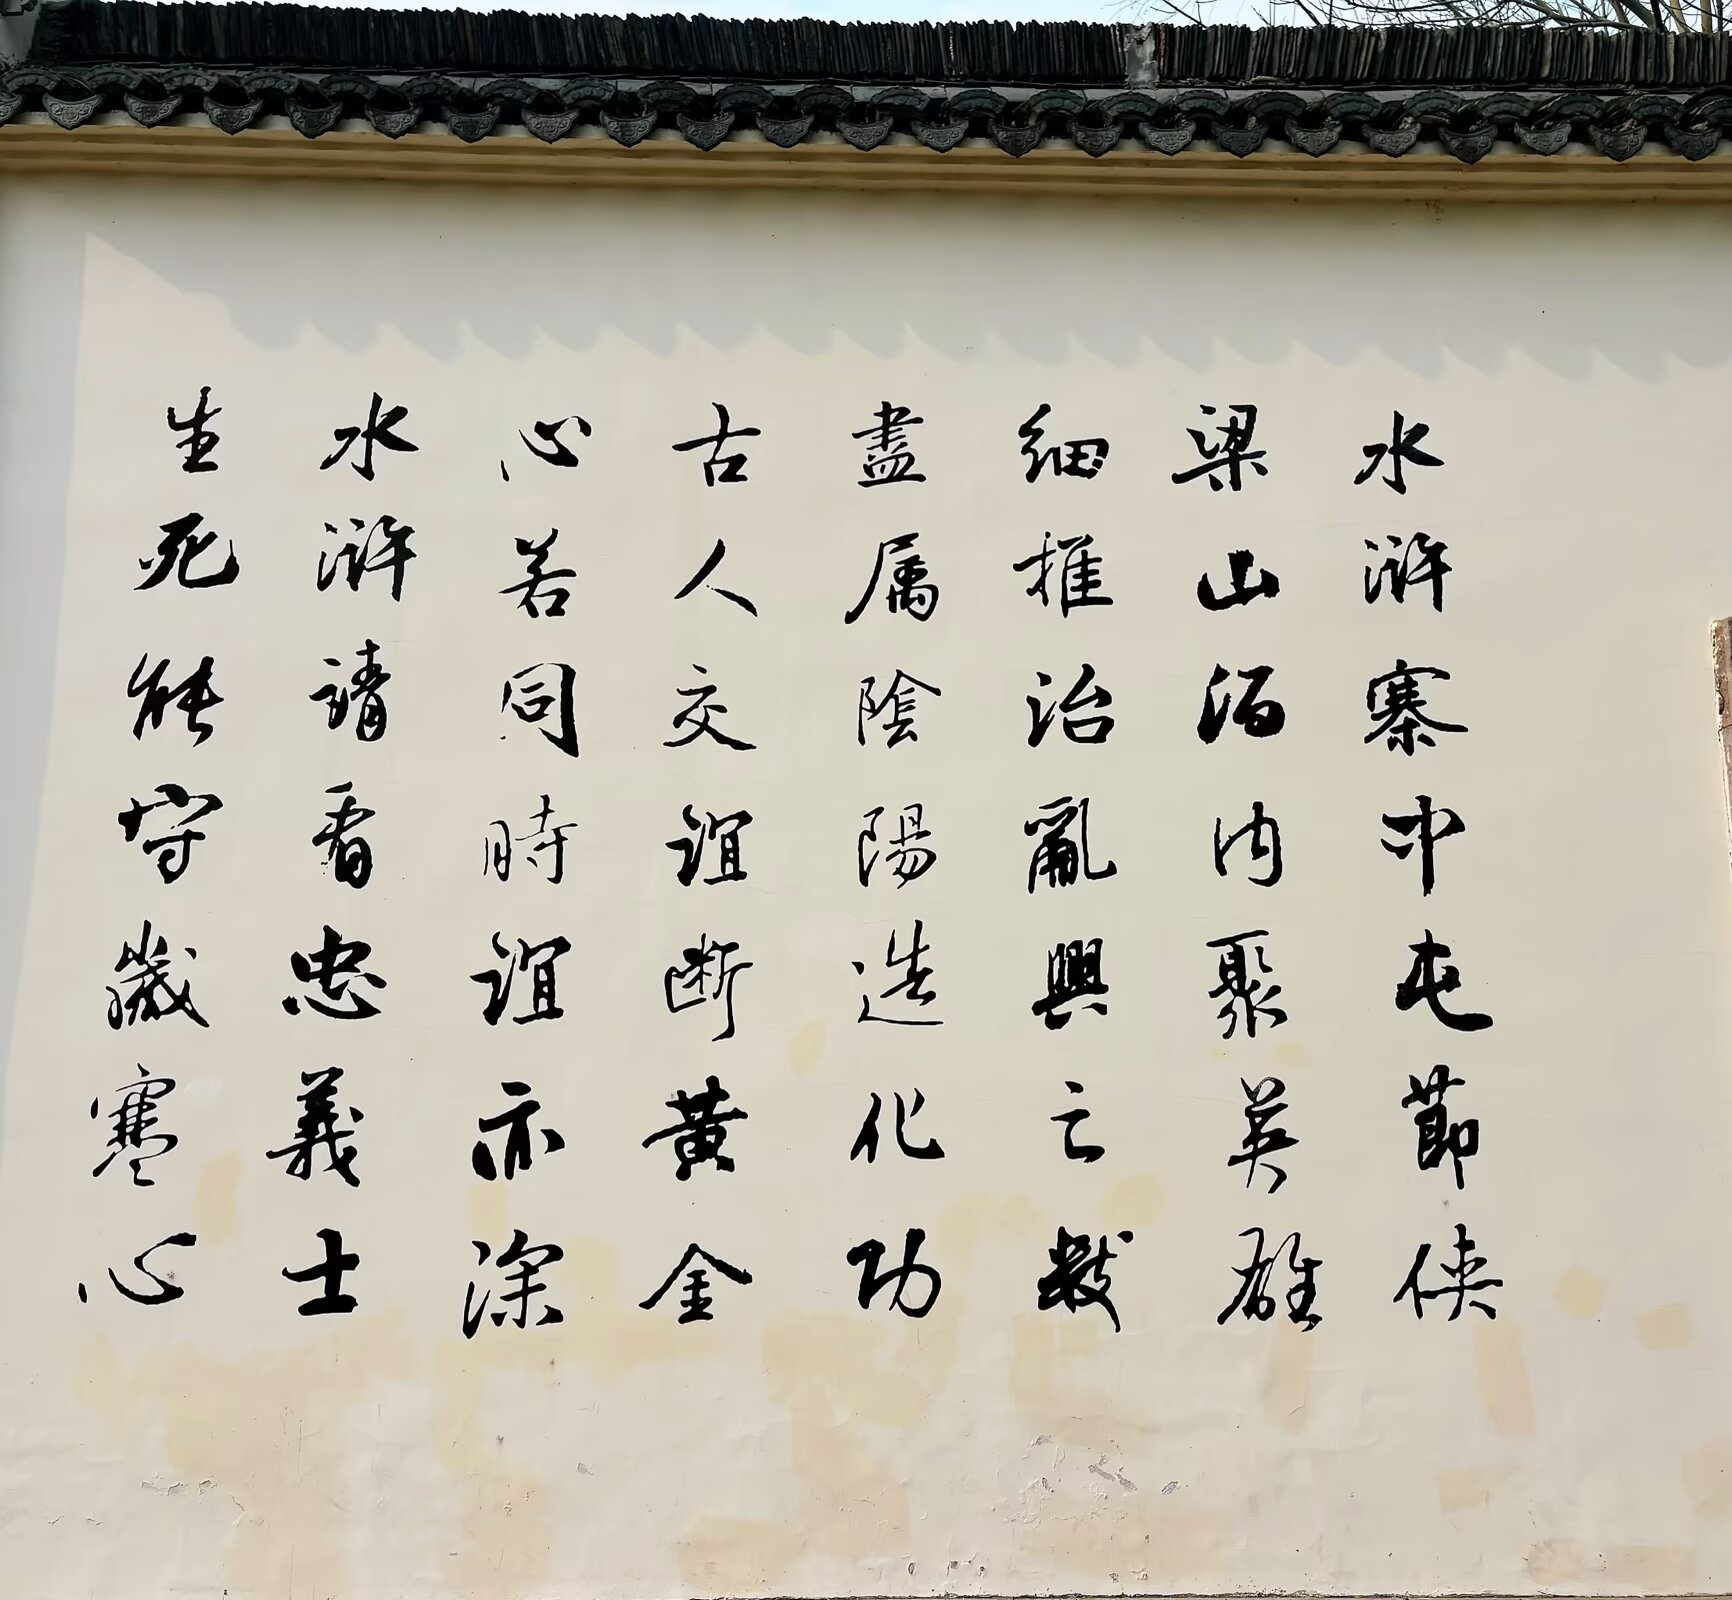 水滸寨中屯節俠
梁山泊内聚英雄
細推治亂興亡數
盡属陰陽造化功
古人交誼斷黄金
心若同時誼亦深
水滸請看忠義士
生死能守歲寒心